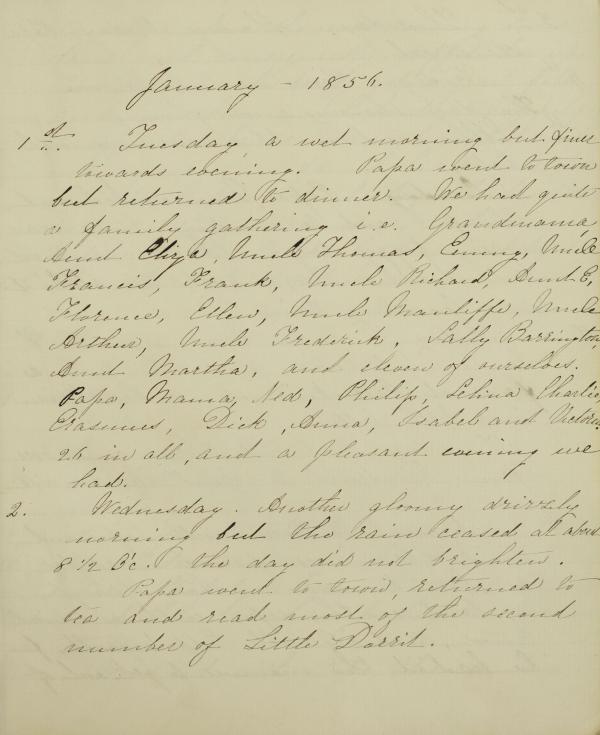 January - 1856.
1st. Tuesday a wet morning but finer
towards evening. Papa went to town
but returned to dinner. We had quite
a family gathering i.e. Grandmama,
Aunt Eliza, Uncle Thomas, Emmy, Uncle
Francis, Frank, Uncle Richard, Aunt E,
Florence, Ellen, Uncle Manliffe, Uncle
Arthur, Uncle Frederick, Sally Barrington,
Aunt Martha, and eleven of ourselves.
Papa, Mama, Ned, Philip, Selina Charlie,
Erasmus, Dick, Anna, Isabel and Victoria
26 in all, and a pleasant evening we
had.
2. Wednesday. Another gloomy drizzly
morning but the rain ceased at about
8 1/2 O'c. the day did not brighten.
Papa went to town, returned to
tea and read most of the second
number of Little Dorrit.